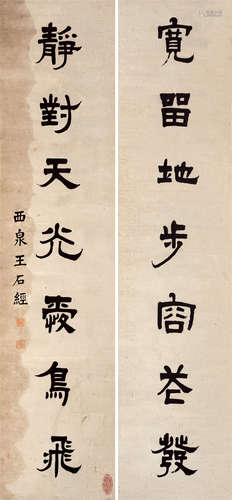 寬留地步容花發
靜對天光愛鳥飛
西泉王石經